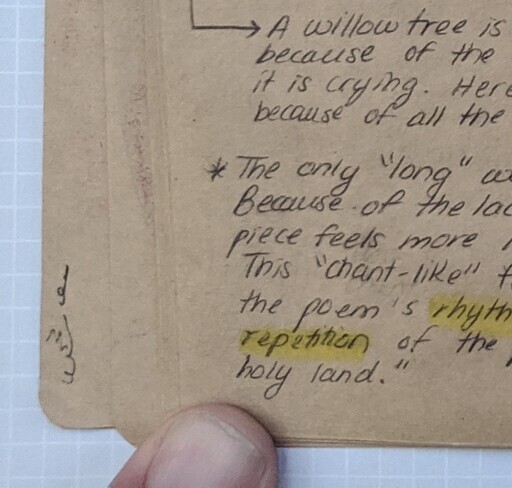 A willow tree is
because of the
it is crying. Here
because of all the
* The only "long"
Because of the
piece feels more
This "chant-like"
the poem's
repetition of the
holy land."